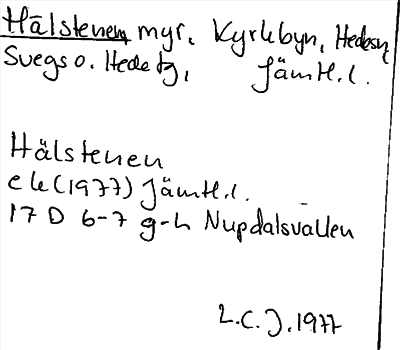 Hälstenen myr. Kyrkbyn, Hedesn
Svegs o. Hede tg, Jämtl.l.
Hälstenen
ek (1977) Jämtl.l.
17 D 6-7 g-h Nupdalsvallen
L.C.J. 1977